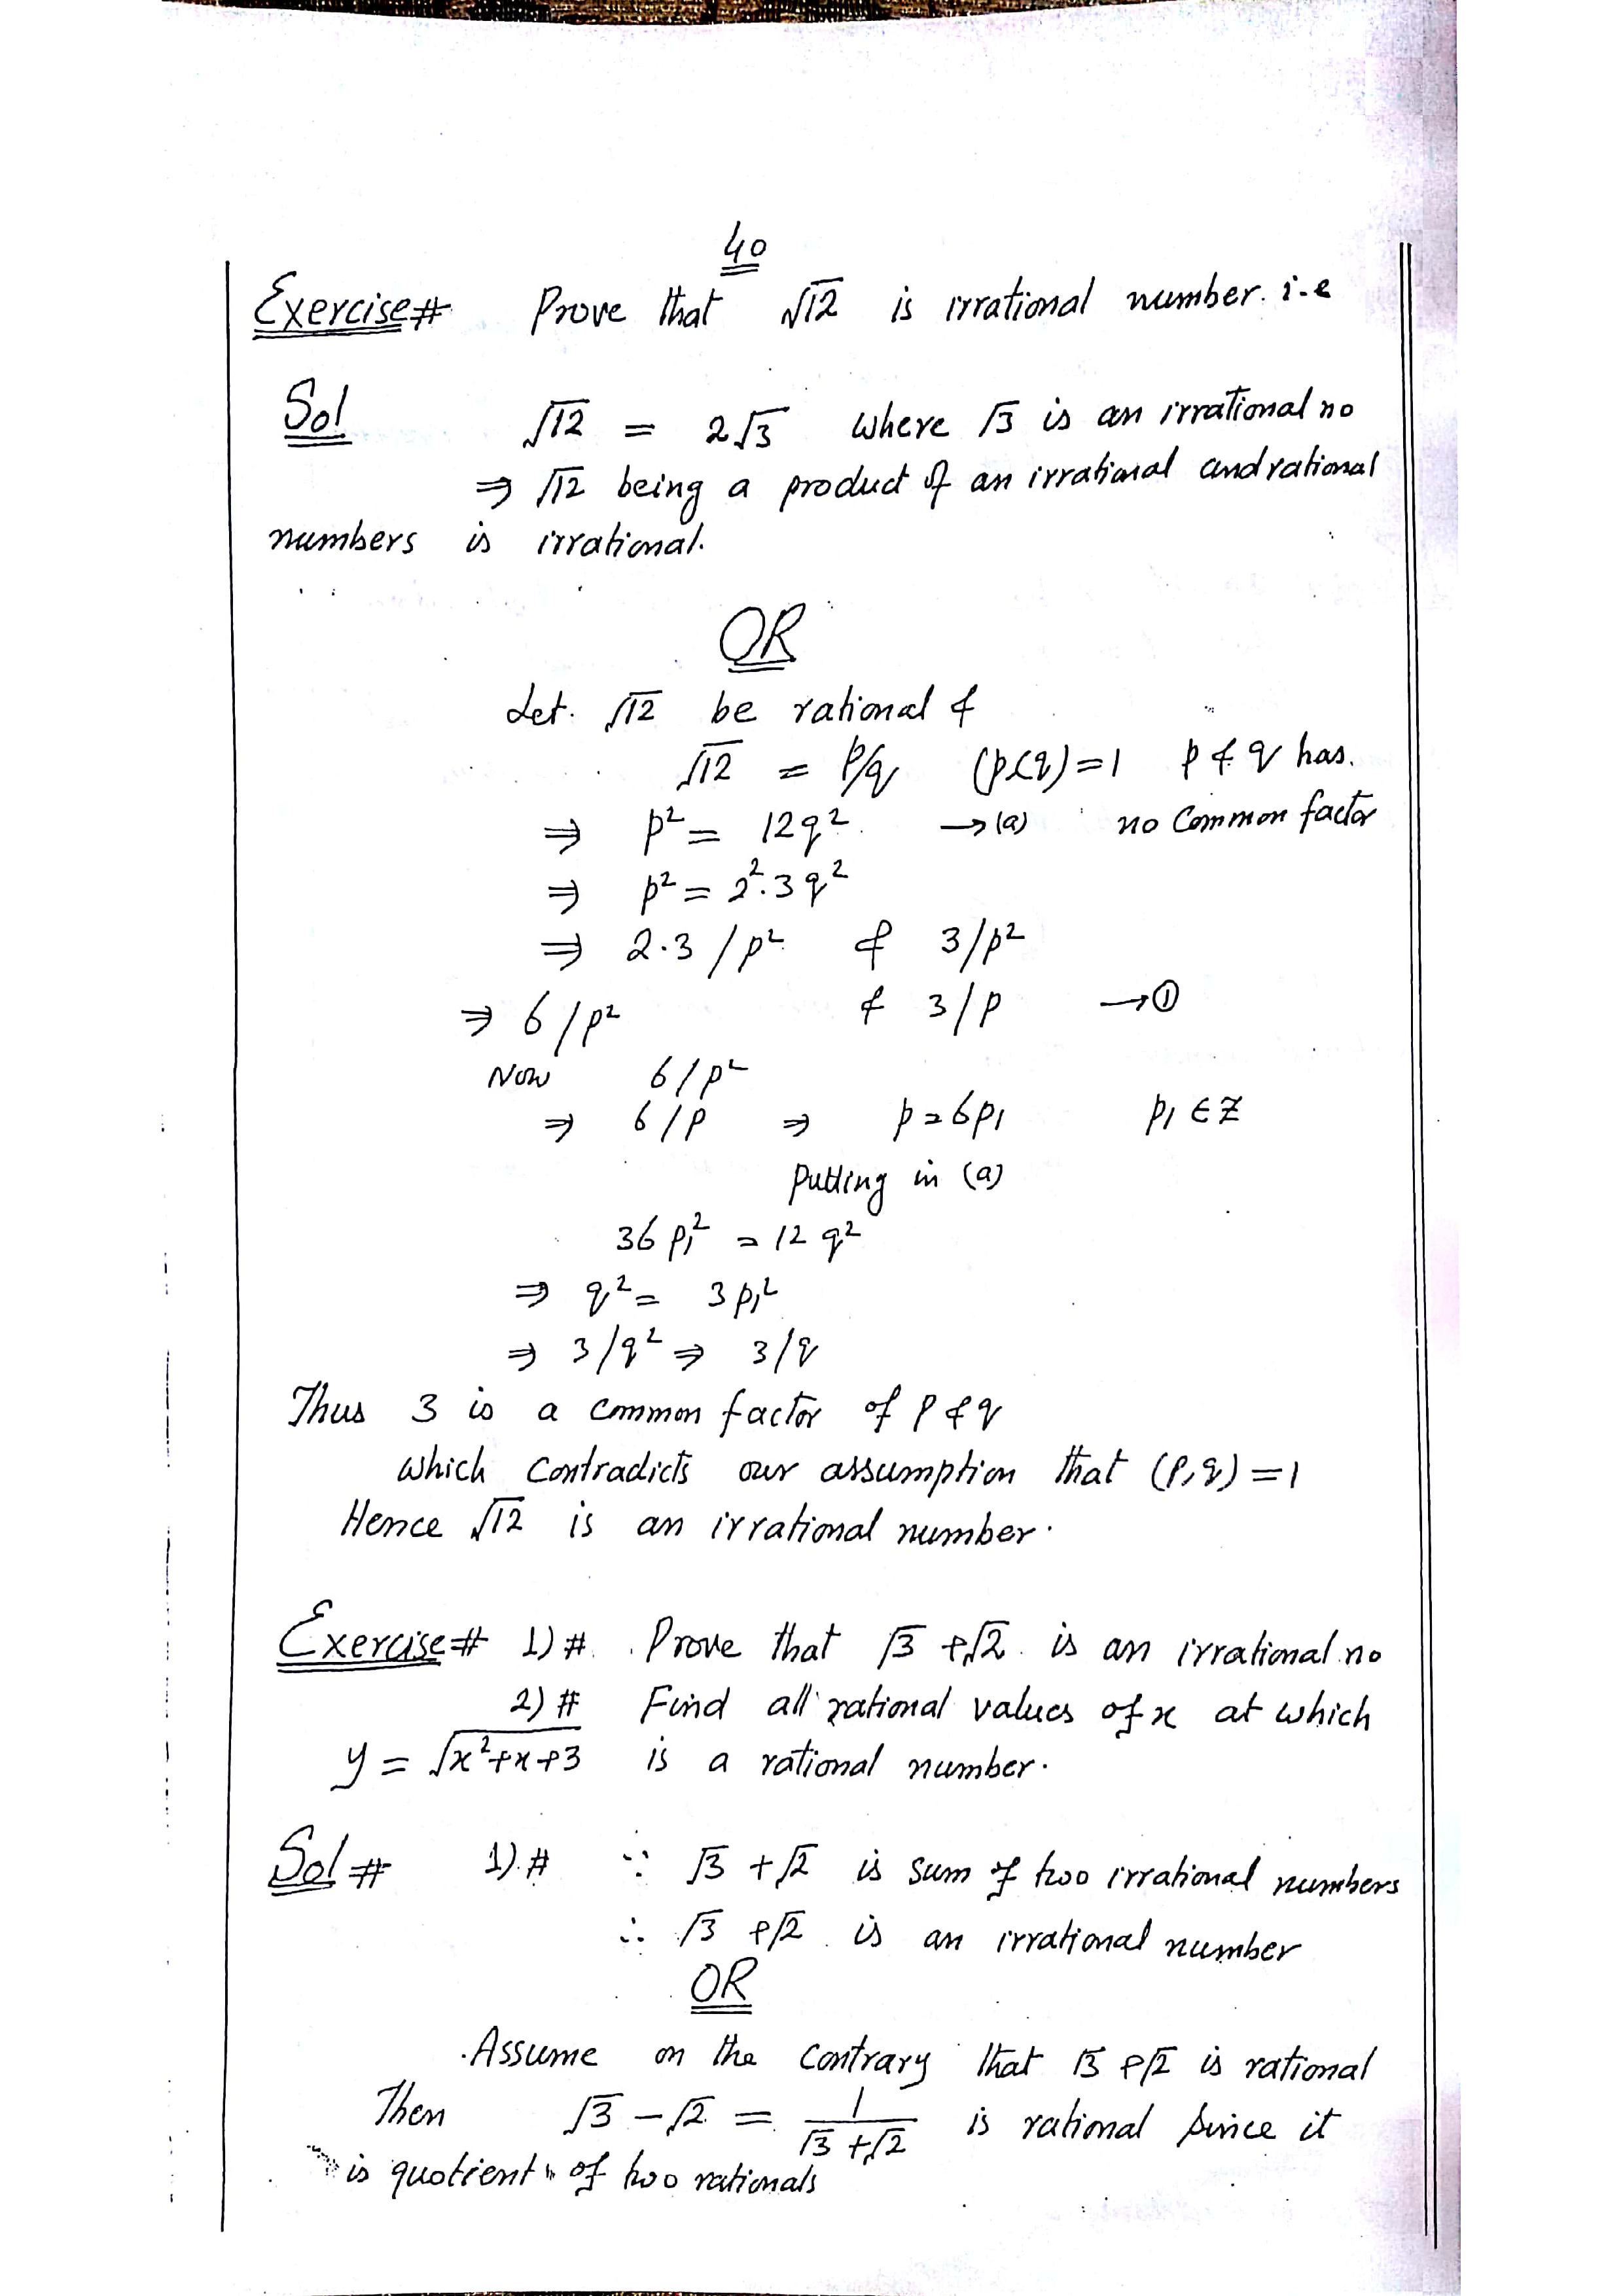 40
Exercise# Prove that √12 is irrational number. i-e
Sol √12 = 2√3 where √3 is an irrational no
⇒ √12 being a product of an irrational and rational
numbers is irrational.
OR
Let. √12 be rational &
√12 = p/q (p,q)=1 p & q has.
⇒ p² = 12q² → (a) no Common factor
⇒ p² = 2².3q²
⇒ 2.3 / p² & 3/p²
⇒ 6 / p² & 3/p → ①
Now 6/p²
⇒ 6/p ⇒ p = 6p₁ p₁ ∈ Z
Putting in (a)
36 p₁² = 12 q²
⇒ q² = 3p₁²
⇒ 3/q² ⇒ 3/q
Thus 3 is a common factor of p & q
which contradicts our assumption that (p,q) = 1
Hence √12 is an irrational number.
Exercise# 1)#. Prove that √3 + √2 is an irrational no
2)# Find all rational values of x at which
y = √x²+x+3 is a rational number.
Sol# 1).# ∵ √3 + √2 is sum of two irrational numbers
∴ √3 + √2 is an irrational number
OR
Assume on the contrary that √3 + √2 is rational
Then √3 - √2 = 1/(√3 + √2) is rational since it
is quotient of two rationals